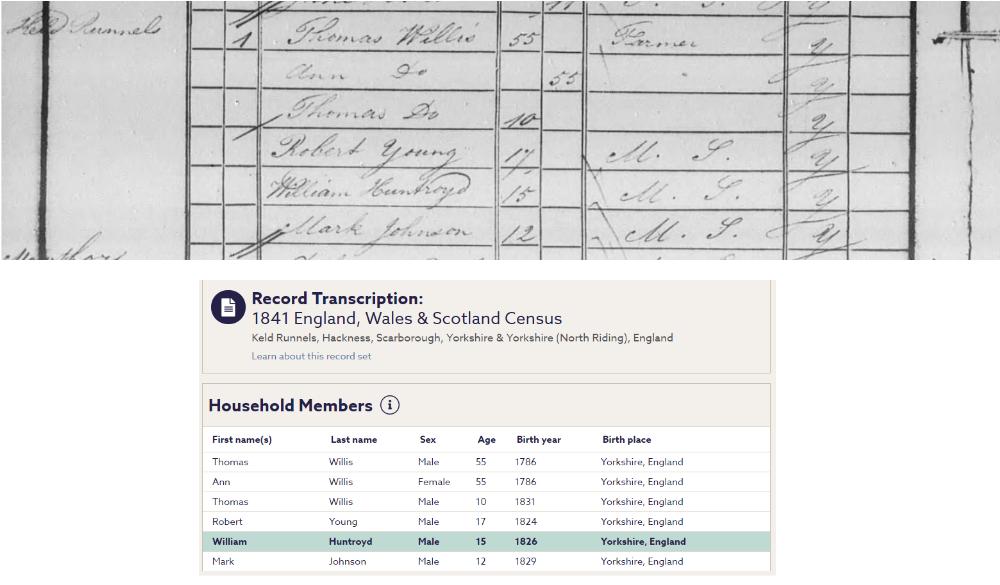 Keld Runnels 1 Thomas Willis 55 Farmer y
Ann Do 55 y
Thomas Do 10 y
Robert Young 17 M. S. y
William Huntroyd 15 M. S. y
Mark Johnson 12 M. S. y
Record Transcription:
1841 England, Wales & Scotland Census
Keld Runnels, Hackness, Scarborough, Yorkshire & Yorkshire (North Riding), England
Learn about this record set
Household Members i
First name(s) Last name Sex Age Birth year Birth place
Thomas Willis Male 55 1786 Yorkshire, England
Ann Willis Female 55 1786 Yorkshire, England
Thomas Willis Male 10 1831 Yorkshire, England
Robert Young Male 17 1824 Yorkshire, England
William Huntroyd Male 15 1826 Yorkshire, England
Mark Johnson Male 12 1829 Yorkshire, England